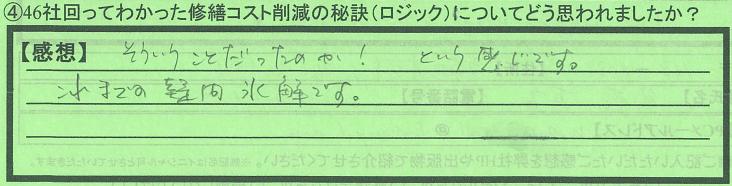 ④46社回ってわかった修繕コスト削減の秘訣（ロジック）についてどう思われましたか？
【感想】 そういうことだったのか！ という感じです。
これまでの疑問氷解です。